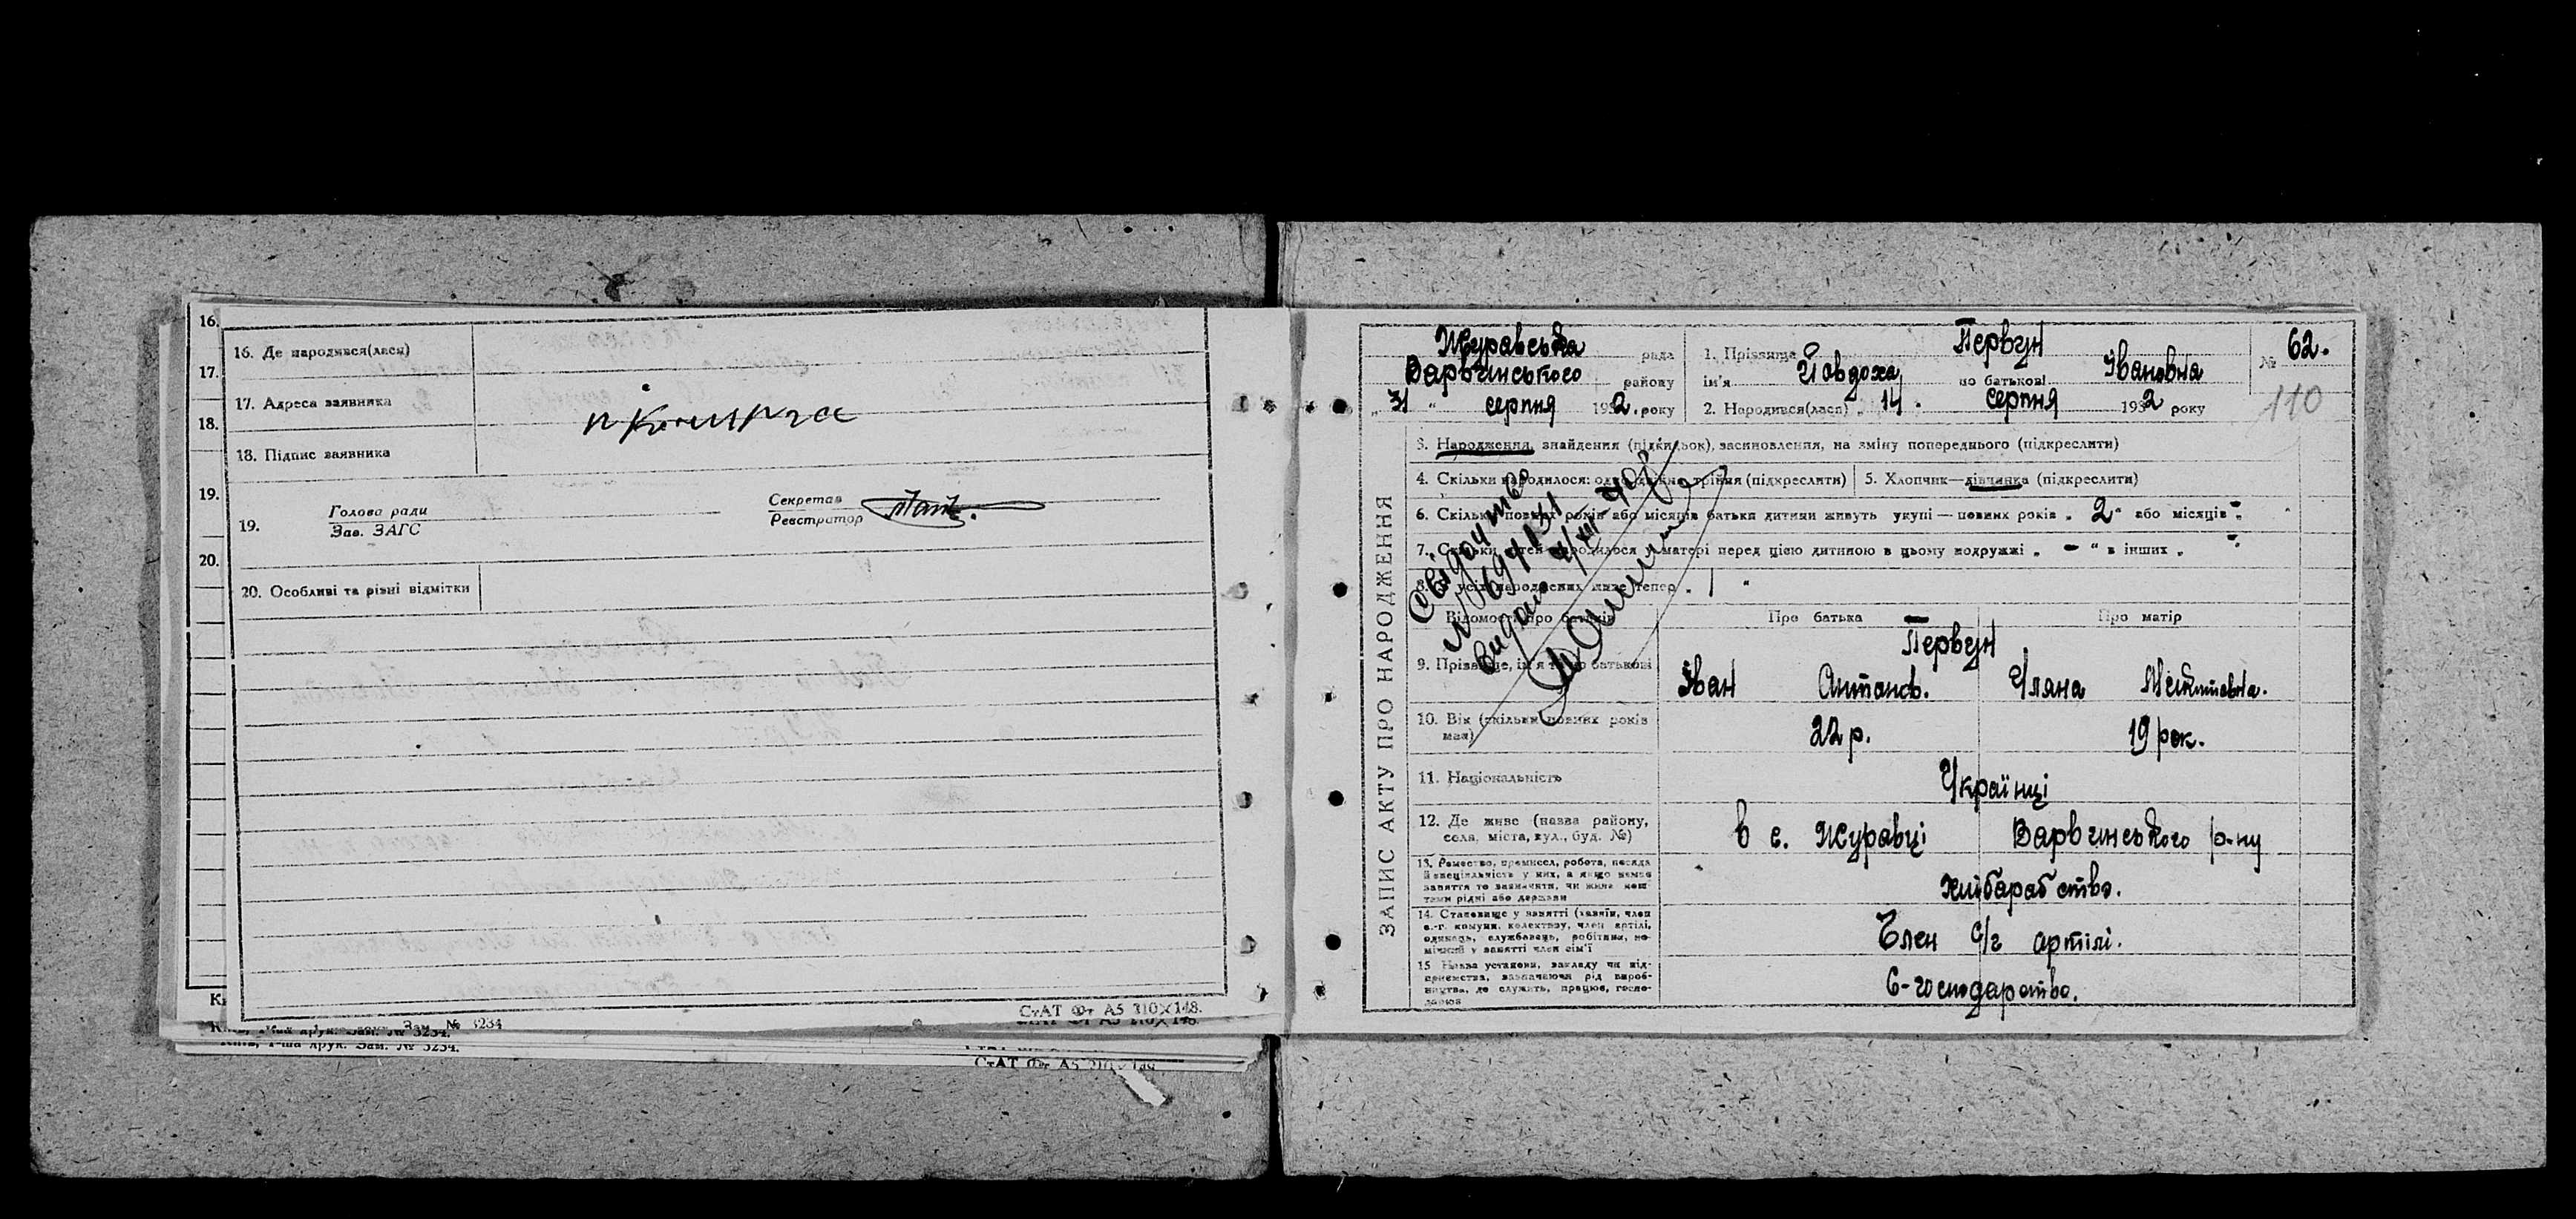 16.
17.
18.
19.
20.
16. Де народився(лася)
17. Адреса заявника
18. Підпис заявника
19.
Голова ради
Зав. ЗАГС
Секретав
Реєстратор
20. Особливі та різні відмітки
СтАТ Фт А5 210×148.
Зам. № 3234
Київ, 1-ша друк. Зам. № 3234.
СтАТ Фт А5 210×148
ЗАПИС АКТУ ПРО НАРОДЖЕННЯ
Журавська рада
Варвинського району
„ 31 " серпня 1932. року
1. Прізвище Первун
ім'я Йовдоха по батькові Івановна
2. Народився(лася) „ 14. серпня 1932 року
№ 62.
110
3. Народження, знайдення (підкидьок), засиновлення, на зміну попереднього (підкреслити)
4. Скільки народилося: одно, двійня, трійня (підкреслити)
5. Хлопчик—дівчинка (підкреслити)
6. Скільки повних років або місяців батьки дитини живуть укупі — повних років „ 2 " або місяців „ - "
7. Скільки дітей народилося у матері перед цією дитиною в цьому подружжі „ - " в інших „ - "
8. З усіх народжених живе тепер „ 1 "
Свідоцтво
видано
Відомості про батьків
Про батька
Про матір
9. Прізвище, ім'я та по батькові
Первун
Іван Антонов.
Уляна Микитовна.
10. Вік (скільки повних років має)
22 р.
19 рок.
11. Національність
Українці
12. Де живе (назва району, села, міста, вул., буд. №)
в с. Журавці Варвинського р-ну
13. Ремество, промисел, робота, посада й спеціяльність у них, а якщо немає заняття то зазначити, чи живе коштами рідні або держави
хліборобство.
14. Становище у занятті (хазяїн, член с.-г. комуни, колективу, член артілі, одинець, службовець, робітник, помічний у занятті член сім'ї
Член с/г артілі.
15 Назва установи, закладу чи підприємства, зазначаючи рід виробництва, де служить, працює, господарює
С-господарство.